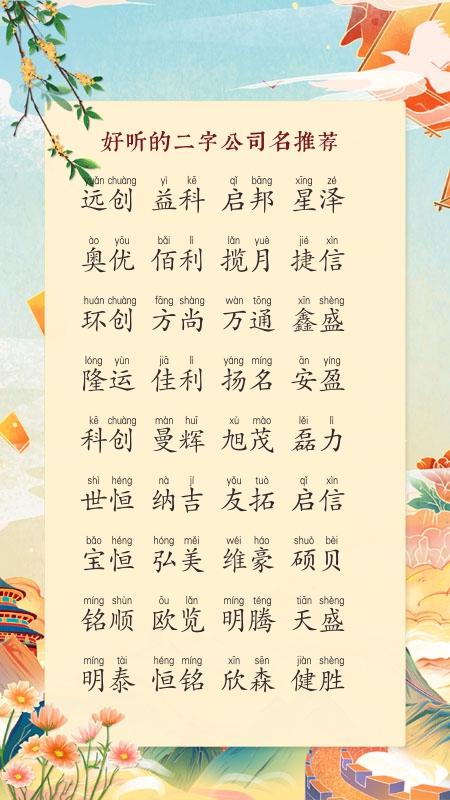 好听的二字公司名推荐
yuǎn chuàng yì kē qǐ bāng xīng zé
远创 益科 启邦 星泽
ào yōu bǎi lì lǎn yuè jié xìn
奥优 佰利 揽月 捷信
huán chuàng fāng shàng wàn tōng xīn shèng
环创 方尚 万通 鑫盛
lóng yùn jiā lì yáng míng ān yíng
隆运 佳利 扬名 安盈
kē chuàng màn huī xù mào lěi lì
科创 曼辉 旭茂 磊力
shì héng nà jí yǒu tuò qǐ xìn
世恒 纳吉 友拓 启信
bǎo héng hóng měi wéi háo shuò bèi
宝恒 弘美 维豪 硕贝
míng shùn ōu lǎn míng téng tiān shèng
铭顺 欧览 明腾 天盛
míng tài héng míng xīn sēn jiàn shèng
明泰 恒铭 欣森 健胜